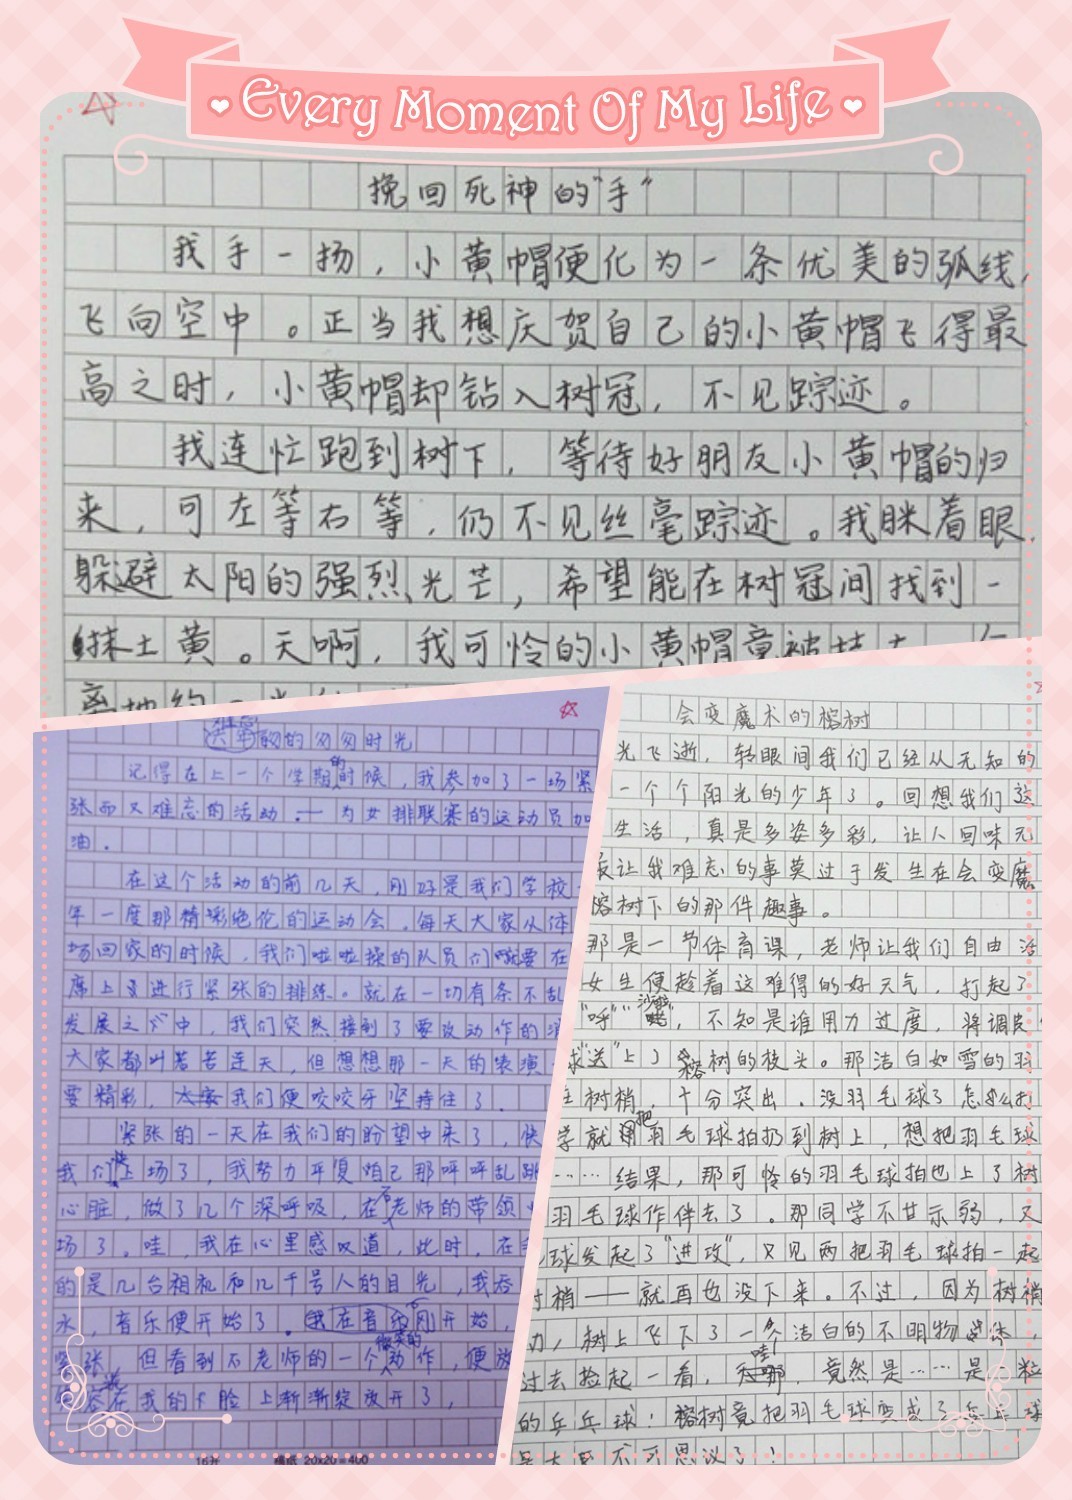 Every Moment Of My Life
挽回死神的"手"
我手一扬，小黄帽便化为一条优美的弧线，
飞向空中。正当我想庆贺自己的小黄帽飞得最
高之时，小黄帽却钻入树冠，不见踪迹。
我连忙跑到树下，等待好朋友小黄帽的归
来，可左等右等，仍不见丝毫踪迹。我眯着眼，
躲避太阳的强烈光芒，希望能在树冠间找到一
抹土黄。天啊，我可怜的小黄帽竟被
离地约
的匆匆时光
记得在上一个学期的时候，我参加了一场紧
张而又难忘的活动——为女排联赛的运动员加
油。
在这个活动的前几天，刚好是我们学校一
年一度那精彩绝伦的运动会。每天大家从体
场回家的时候，我们啦啦操的队员们就要在
席上进行紧张的排练。就在一切有条不乱
发展之下中，我们突然接到了要改动作的消
大家都叫苦苦连天，但想想那一天的表演
要精彩，我们便咬咬牙坚持住了。
紧张的一天在我们的盼望中来了，快
我们上场了，我努力平复自己那呼呼乱跳
心脏，做了几个深呼吸，在石老师的带领
场了。哇，我在心里感叹道，此时，在
的是几台相机和几千号人的目光，我吞
水，音乐便开始了。我在音乐刚开始，
紧张，但看到石老师的一个微笑的动作，便放
在我的脸上渐渐绽放开了，
16开 稿纸 20x20=400
会变魔术的榕树
光飞逝，转眼间我们已经从无知的
一个个阳光的少年了。回想我们这
生活，真是多姿多彩，让人回味无
让我难忘的事莫过于发生在会变魔
榕树下的那件趣事。
那是一节体育课，老师让我们自由活
女生便趁着这难得的好天气，打起了
"呼"，不知是谁用力过度，将调皮
球"送"上了榕树的枝头。那洁白如雪的羽
在树梢，十分突出。没羽毛球了怎么打
学就把羽毛球拍扔到树上，想把羽毛球
……结果，那可怜的羽毛球拍也上了树
羽毛球作伴去了。那同学不甘示弱，又
球发起了"进攻"，只见两把羽毛球拍一起
树梢——就再也没下来。不过，因为树梢
动，树上飞下了一个洁白的不明物体，
过去捡起一看，哇，竟然是……是一粒
的乒乓球！榕树竟把羽毛球变成了乒乓球
不可思议了！